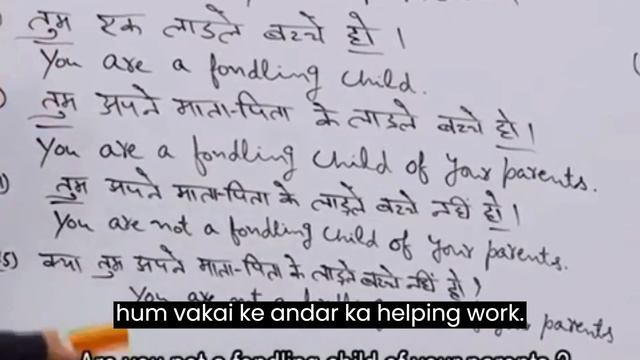 तुम एक लाडले बच्चे हो।
You are a fondling child.
तुम अपने माता-पिता के लाडले बच्चे हो।
You are a fondling child of your parents.
तुम अपने माता-पिता के लाड़ले बच्चे नहीं हो।
You are not a fondling child of your parents.
5) क्या तुम अपने माता-पिता के लाडले बच्चे नहीं हो?
You are not a fondling parents
hum vakai ke andar ka helping work.
Are you not a fondling child of your parents?